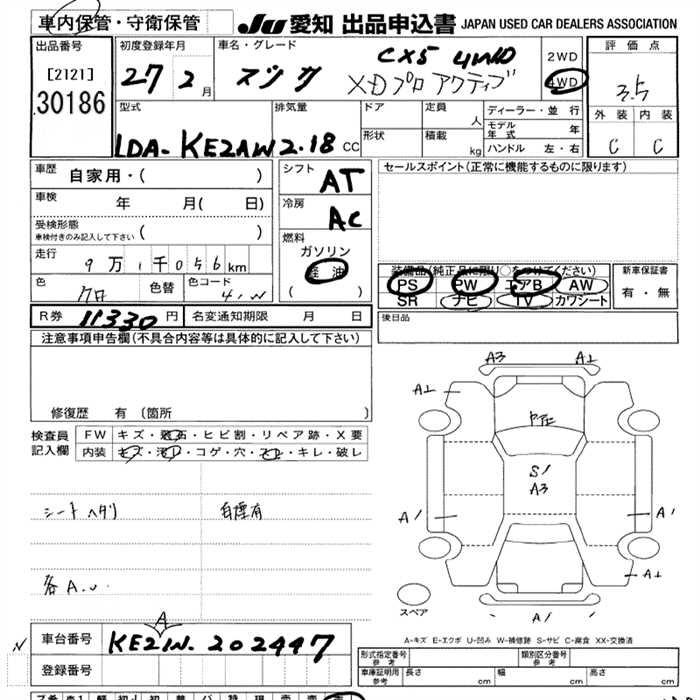 車内保管・守衛保管
JU 愛知 出品申込書 JAPAN USED CAR DEALERS ASSOCIATION
出品番号
[2121]
30186
初度登録年月
27 2月
車名・グレード
マツダ
CX5 4WD
XDプロアクティブ
2WD
4WD
評価点
3.5
外装 内装
C C
型式
LDA-KE2AW
排気量
2.18 CC
ドア
形状
定員 人
積載 kg
ディーラー・並行
モデル年式 年
ハンドル 左・右
車歴
自家用・( )
車検
年 月( 日)
受検形態
車検付きのみ記入して下さい ( )
走行
9万1千056km
色
クロ
色替
色コード
シフト
AT
冷房
AC
燃料
ガソリン
軽油
( )
セールスポイント(正常に機能するものに限ります)
装備品(純正品に限り○をつけてください)
PS PW エアB AW
SR ナビ TV カワシート
新車保証書
有・無
後日品
R券 11330円
名変通知期限 月 日
注意事項申告欄(不具合内容等は具体的に記入して下さい)
修復歴 有 (箇所 )
検査員
記入欄
FW キズ・飛石・ヒビ割・リペア跡・X要
内装 キズ・汚レ・コゲ・穴・スレ・キレ・破レ
シートヘタリ
各A.U.
A3 A1
A1
S1
A3
A1 A1
A1
A1
スペア
A-キズ E-エクボ U-凹み W-補修跡 S-サビ C-腐食 XX-交換済
車台番号
A
KE2IW-202447
N
登録番号
形式指定番号
参考
類別区分番号
参考
車庫証明用
参考
長さ cm
幅 cm
高さ cm